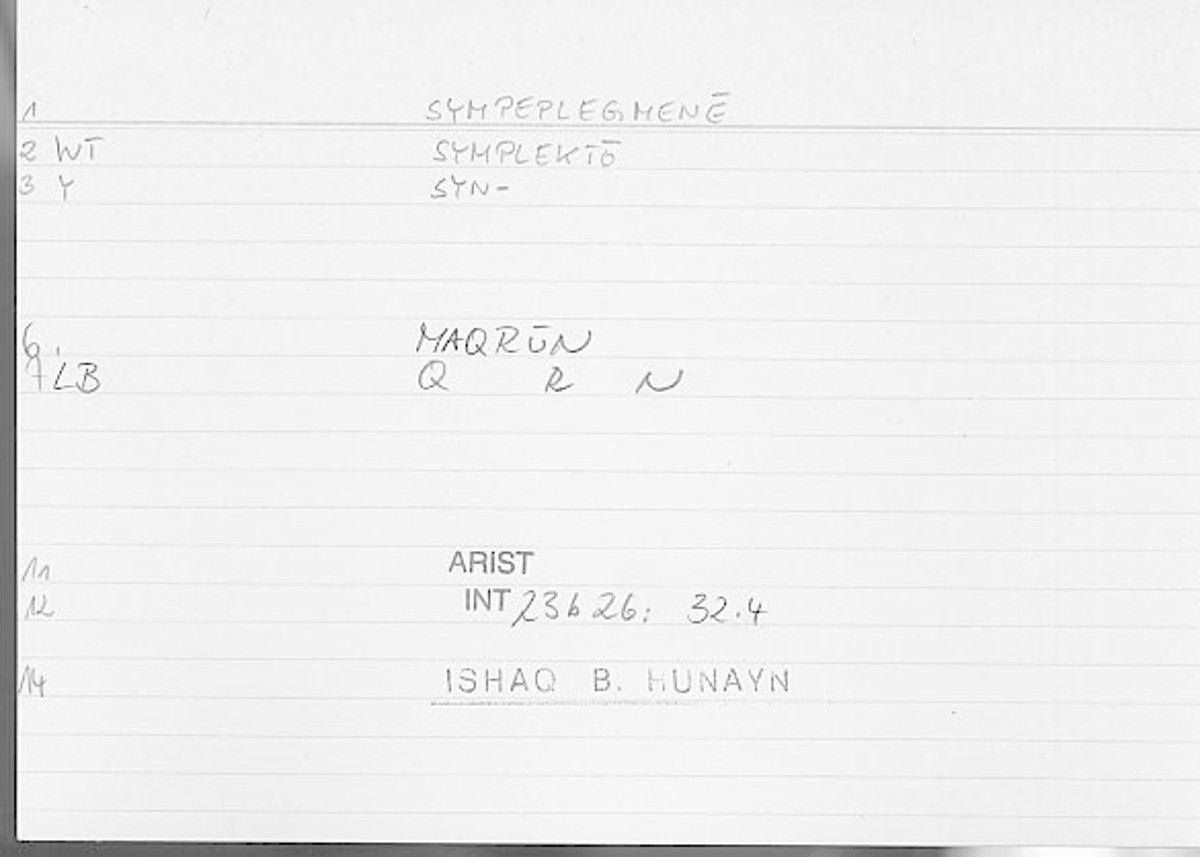 1 SYMPEPLEGMENĒ
2 WT SYMPLEKTŌ
3 Y SYN-
6. MAQRŪN
7 LB Q R N
11 ARIST
12 INT 23b26; 32.4
14 ISHAQ B. HUNAYN